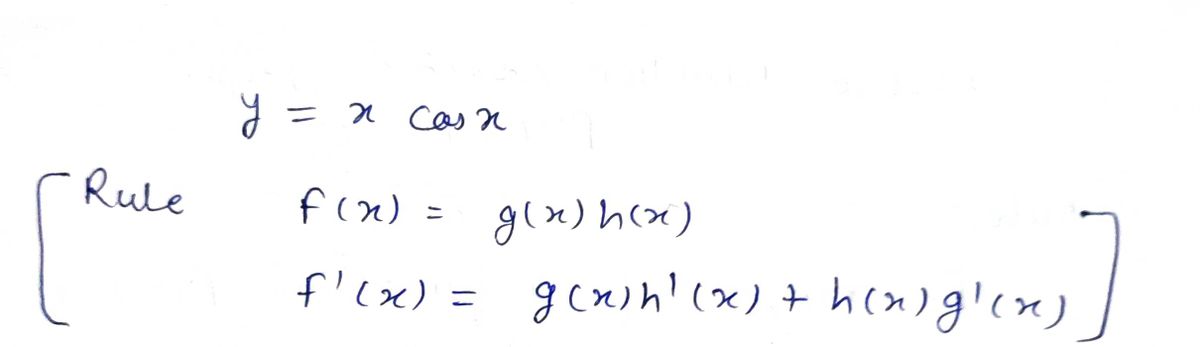 y = x cos x
[Rule f(x) = g(x)h(x)
f'(x) = g(x)h'(x) + h(x)g'(x)]